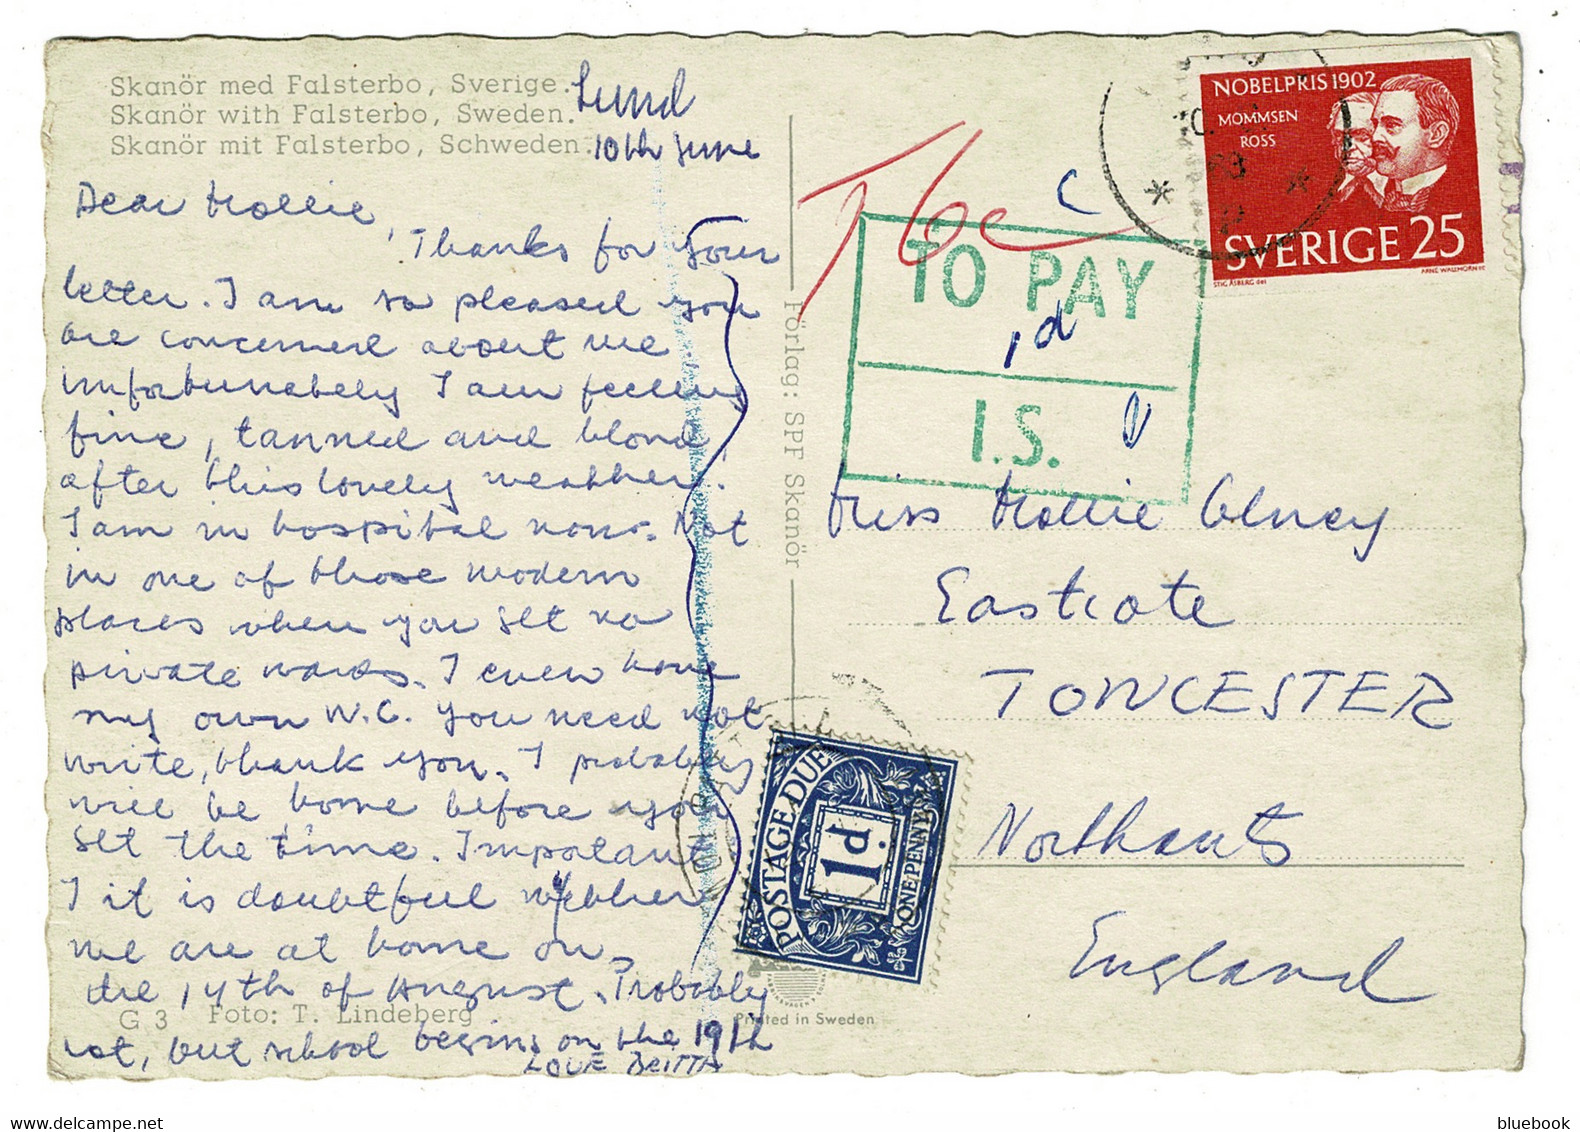 Skanör med Falsterbo, Sverige.
Skanör with Falsterbo, Sweden.
Skanör mit Falsterbo, Schweden.
Lund
10th June
Dear Mollie,
Thanks for your
letter. I am so pleased you
are concerned about me
unfortunately I am feeling
fine, tanned and blond
after this lovely weather!
I am in hospital now. Not
in one of those modern
places when you get no
private wards. I even have
my own W.C. You need not
write, thank you. I probably
will be home before you
get the time. Important
! it is doubtful whether
we are at home on
the 14th of August. Probably
not, but school begins on the 19th
LOVE BRITTA
G 3 Foto: T. Lindeberg
Förlag: SPF Skanör
Printed in Sweden
T 6c
c
TO PAY
1d
I.S.
NOBELPRIS 1902
MOMMSEN
ROSS
SVERIGE 25
STIG ÅSBERG del
ARNE WALLHORN sc
Miss Mollie Olney
Eastcote
TOWCESTER
Northants
England
POSTAGE DUE
1d.
ONE PENNY
bluebook